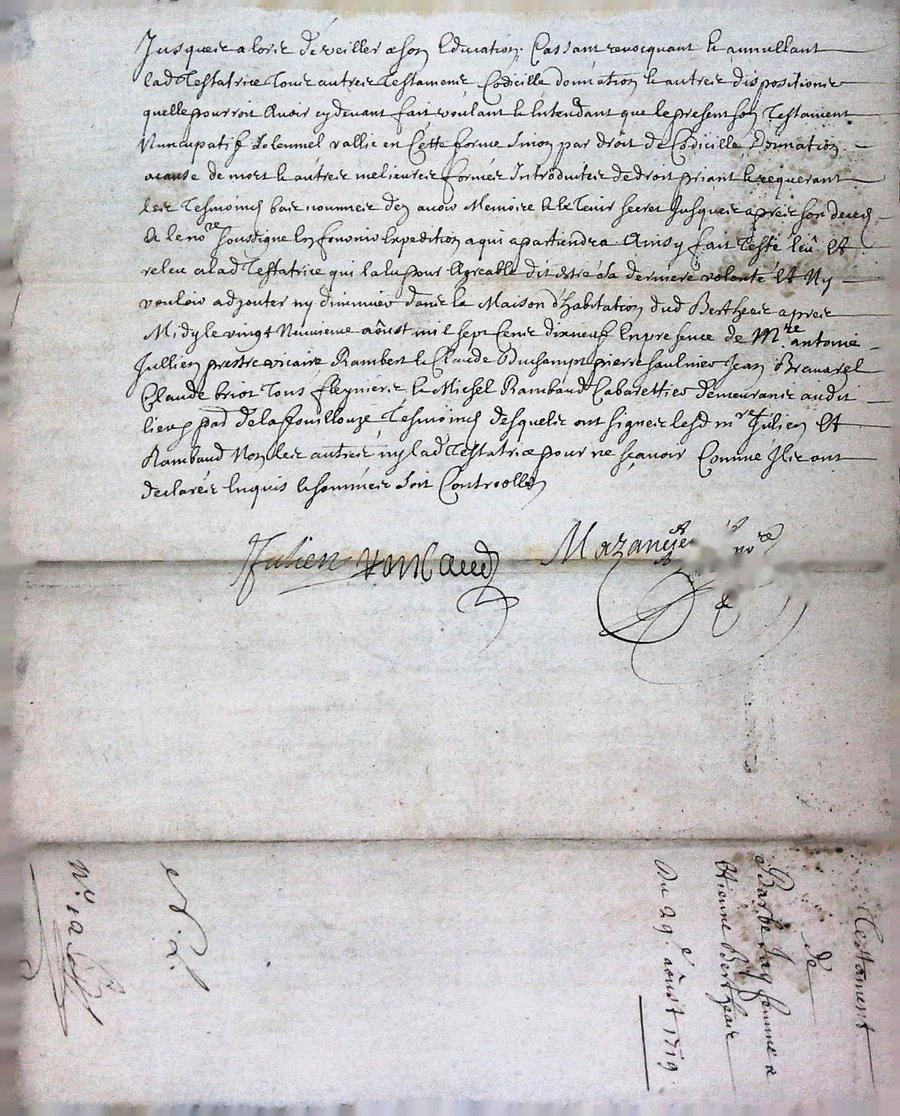 Jusques alors de veiller a son Education, Cassant revocquant & annullant
lad Testatrice tous autres Testaments Codicille donnation & autres dispositions
quelle pourroit Avoir cydevant fait voulant & Entendant que le present son Testament
Nuncupatif Solennel vallie en Cette forme Sinon par droit de Codicille, Donnation
acause de mort & autres melieures formes Introduites de droit priant & requerant
les Tesmoins bas nommes den avoir Memoire & le Tenir Secret Jusques apres son deced
& le nore soussigne En fournir Expedition a qui apartiendra Ainsy fait Testé leû Et
releu alad Testatrice qui la lu pour Agreable dit estre sa derniere volonté Et Ny
vouloir adjouter ny diminuer dans la Maison d'habitation dud Bertheas apres
Midy le vingt Neuvieme aoûst mil sept Cents dixneuf En presence de Mre antoine
Jullien prestre vicaire Rambert & Claude Duchampt pierre faulnier Jean Bravarel
Claude briot Tous & Michel Rambaud Cabarettier demeurants audit
lieu de la fouillouze Tesmoins desquels ont signes lesd mre Julien Et
Rambaud Non les autres ny lad Testatrice pour ne sçavoir Comme Ils ont
declarés Enquis & sommés Soit Controollé
Julien Rambaud Mazanyer nore
Testament
de
Barbe Jay femme a
Etienne Bertheas
Du 29e aoûst 1719